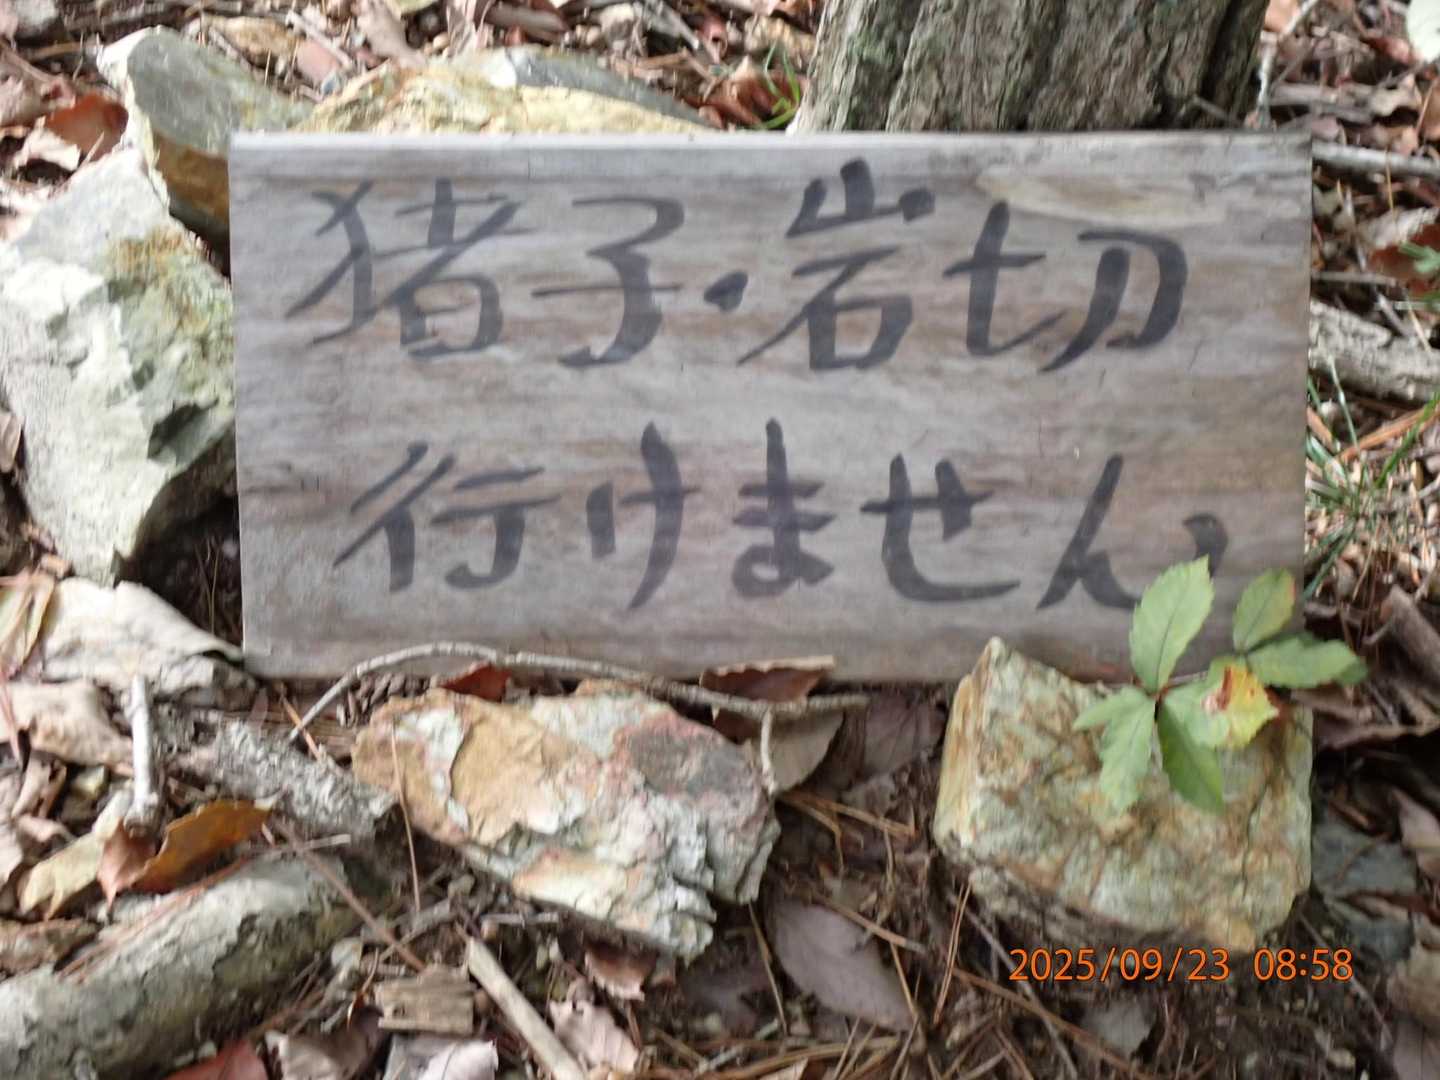 猪子・岩切
行けません
2025/09/23 08:58